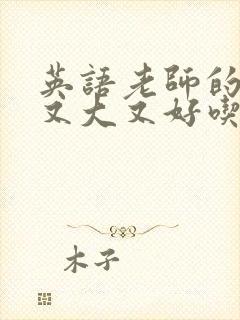 英語老師的
又大又好喫
木子